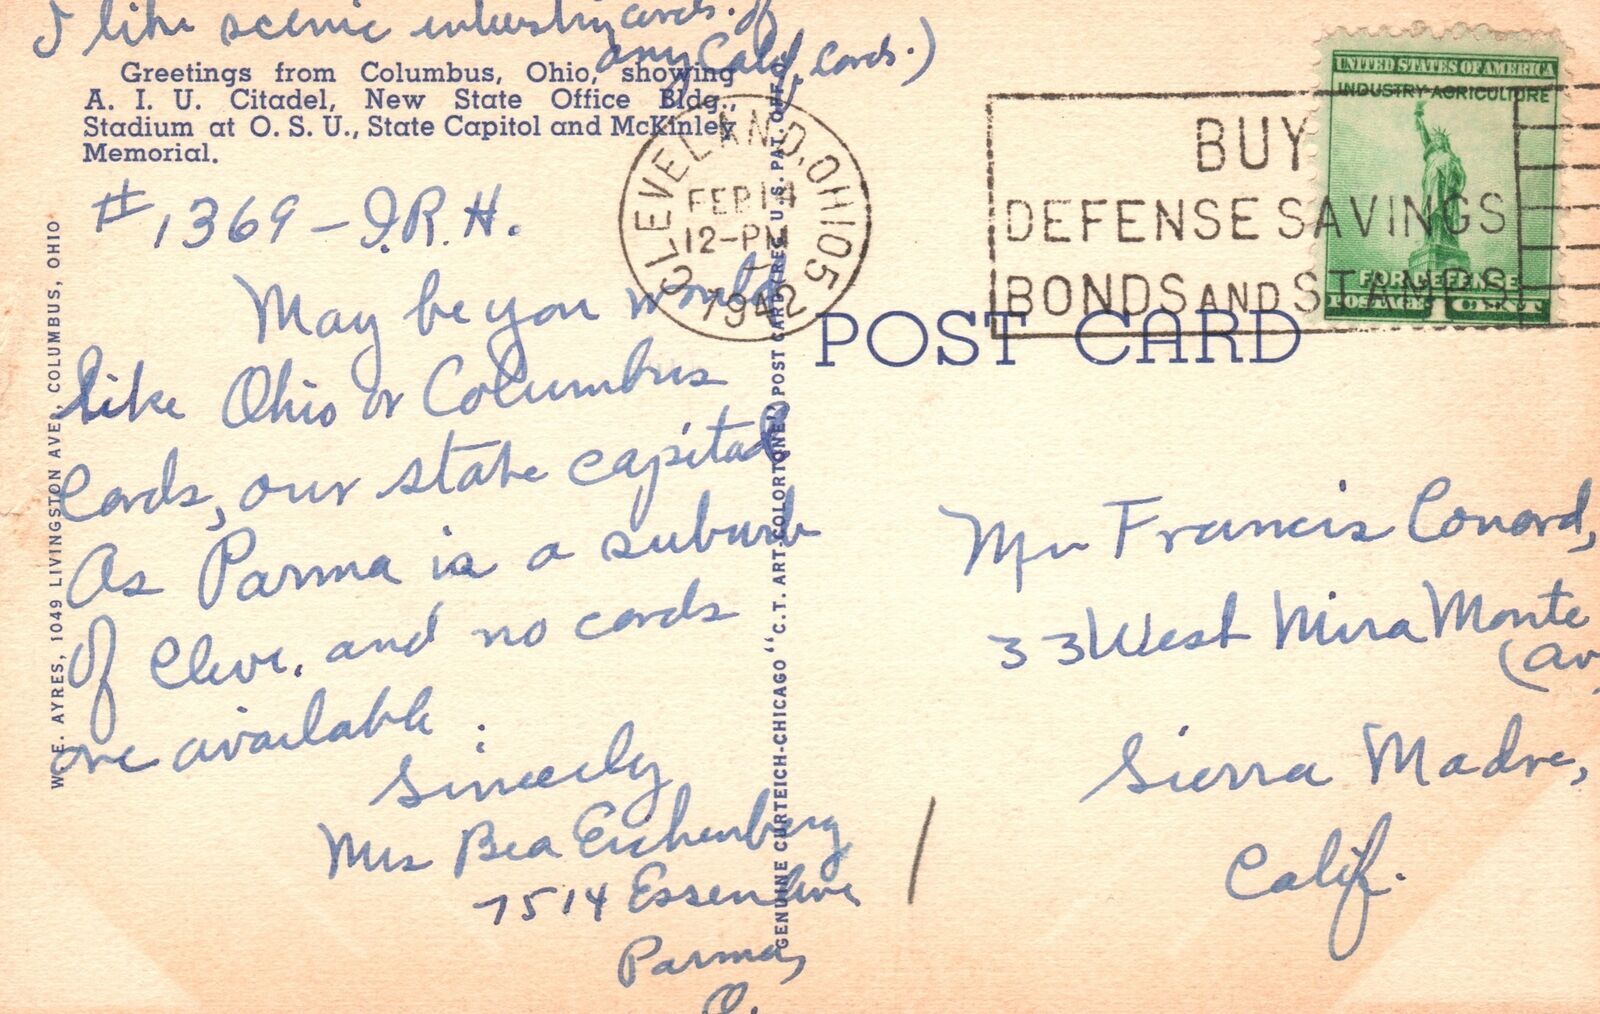 I like scenic interesting cards. of
any Calif. Cards.)
Greetings from Columbus, Ohio, showing
A. I. U. Citadel, New State Office Bldg.,
Stadium at O. S. U., State Capitol and McKinley
Memorial.
#1369 - I.R.H.
May be you would
like Ohio or Columbus
Cards, our state capital
As Parma is a suburb
of Cleve. and no cards
are available.
Sincerely
Mrs Bea Eichenberg
7514 Essen Ave
Parma,
O.
W. E. AYRES, 1049 LIVINGSTON AVE., COLUMBUS, OHIO
GENUINE CURTEICH-CHICAGO "C. T. ART-COLORTONE" POST CARD (REG. U. S. PAT. OFF.)
CLEVELAND, OHIO 5
FEB 14
12-PM
1942
BUY
DEFENSE SAVINGS
BONDS AND STAMPS
UNITED STATES OF AMERICA
INDUSTRY-AGRICULTURE
FOR DEFENSE
POSTAGE 1 CENT
POST CARD
Mr Francis Conard,
33 West Mira Monte
(Av
Sierra Madre,
Calif.